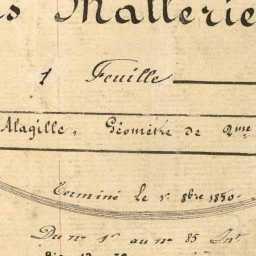 s Mallerie
1 Feuille
Alagille, Géomètre de 2me
Terminé le 1r 8bre 1850.
Du no 1er au no 85 Int